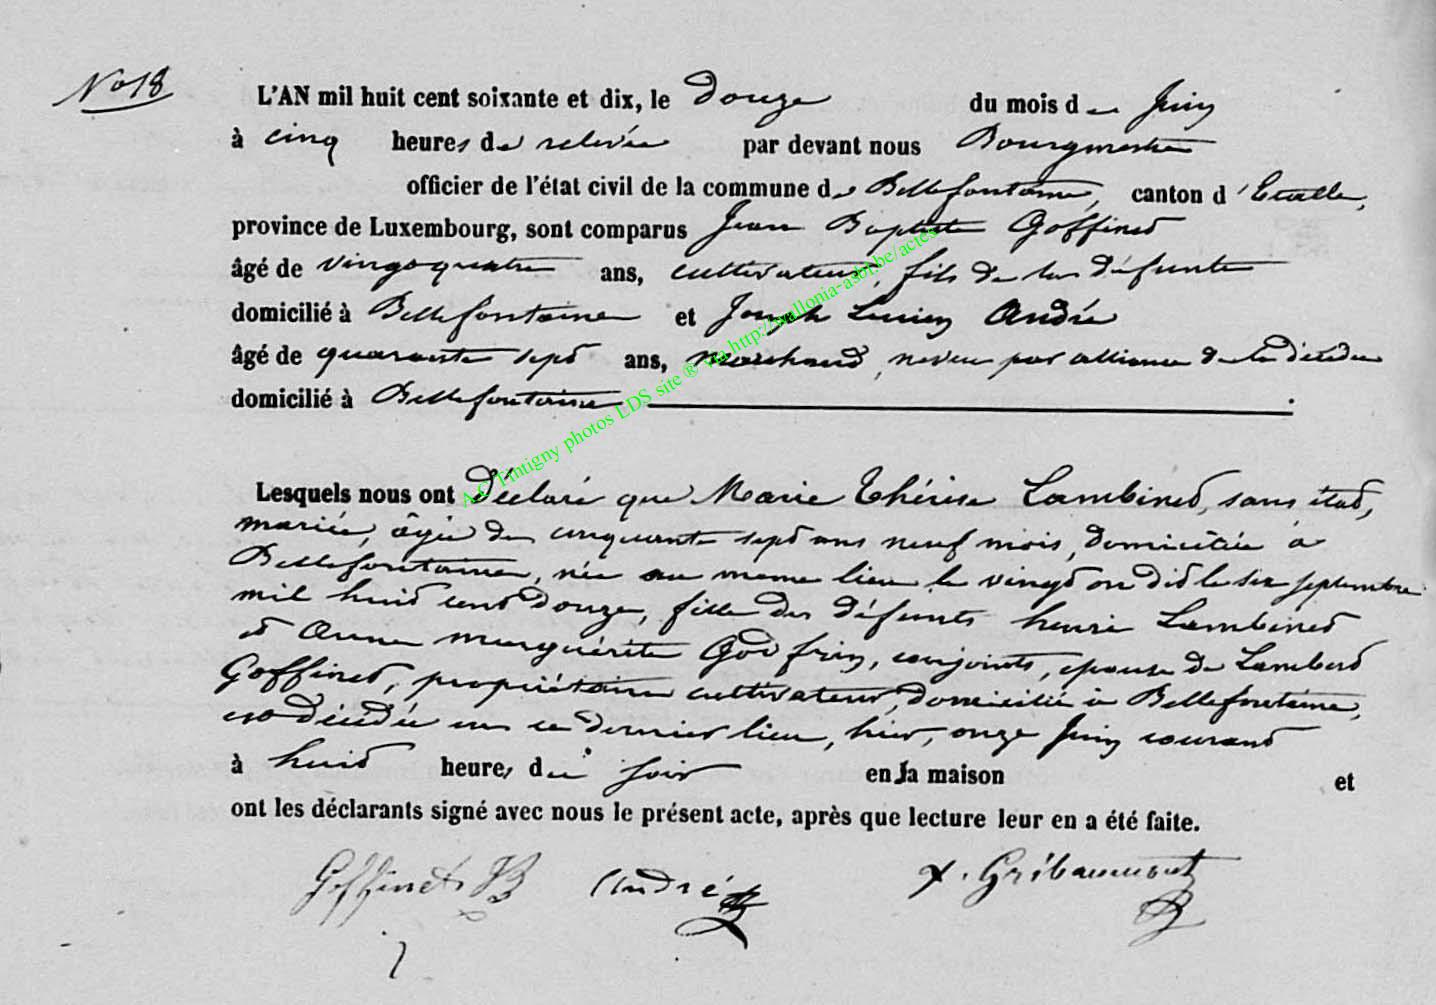 No 18
L'AN mil huit cent soixante et dix, le douze du mois de Juin
à cinq heures de relevée par devant nous Bourgmestre
officier de l'état civil de la commune de Bellefontaine, canton d'Etalle,
province de Luxembourg, sont comparus Jean Baptiste Goffinet
âgé de vingt quatre ans, cultivateur, fils de la défunte
domicilié à Bellefontaine et Joseph Lucien André
âgé de quarante sept ans, marchand, neveu par alliance de la décédée
domicilié à Bellefontaine
Lesquels nous ont déclaré que Marie Thérèse Lambinet, sans état,
mariée, âgée de cinquante sept ans neuf mois, domiciliée à
Bellefontaine, née au même lieu le vingt on dit le six septembre
mil huit cent douze, fille des défunts henri Lambinet
et Anne marguérite Godfrin, conjoints, épouse de Lambert
Goffinet, propriétaire cultivateur, domicilié à Bellefontaine,
est décédée en ce dernier lieu, hier, onze Juin courant
à huit heures du soir en sa maison et
ont les déclarants signé avec nous le présent acte, après que lecture leur en a été faite.
Goffinet JB André x. Gribaumont
A.C Tintigny photos LDS site ® via http://wallonia-asbl.be/actes